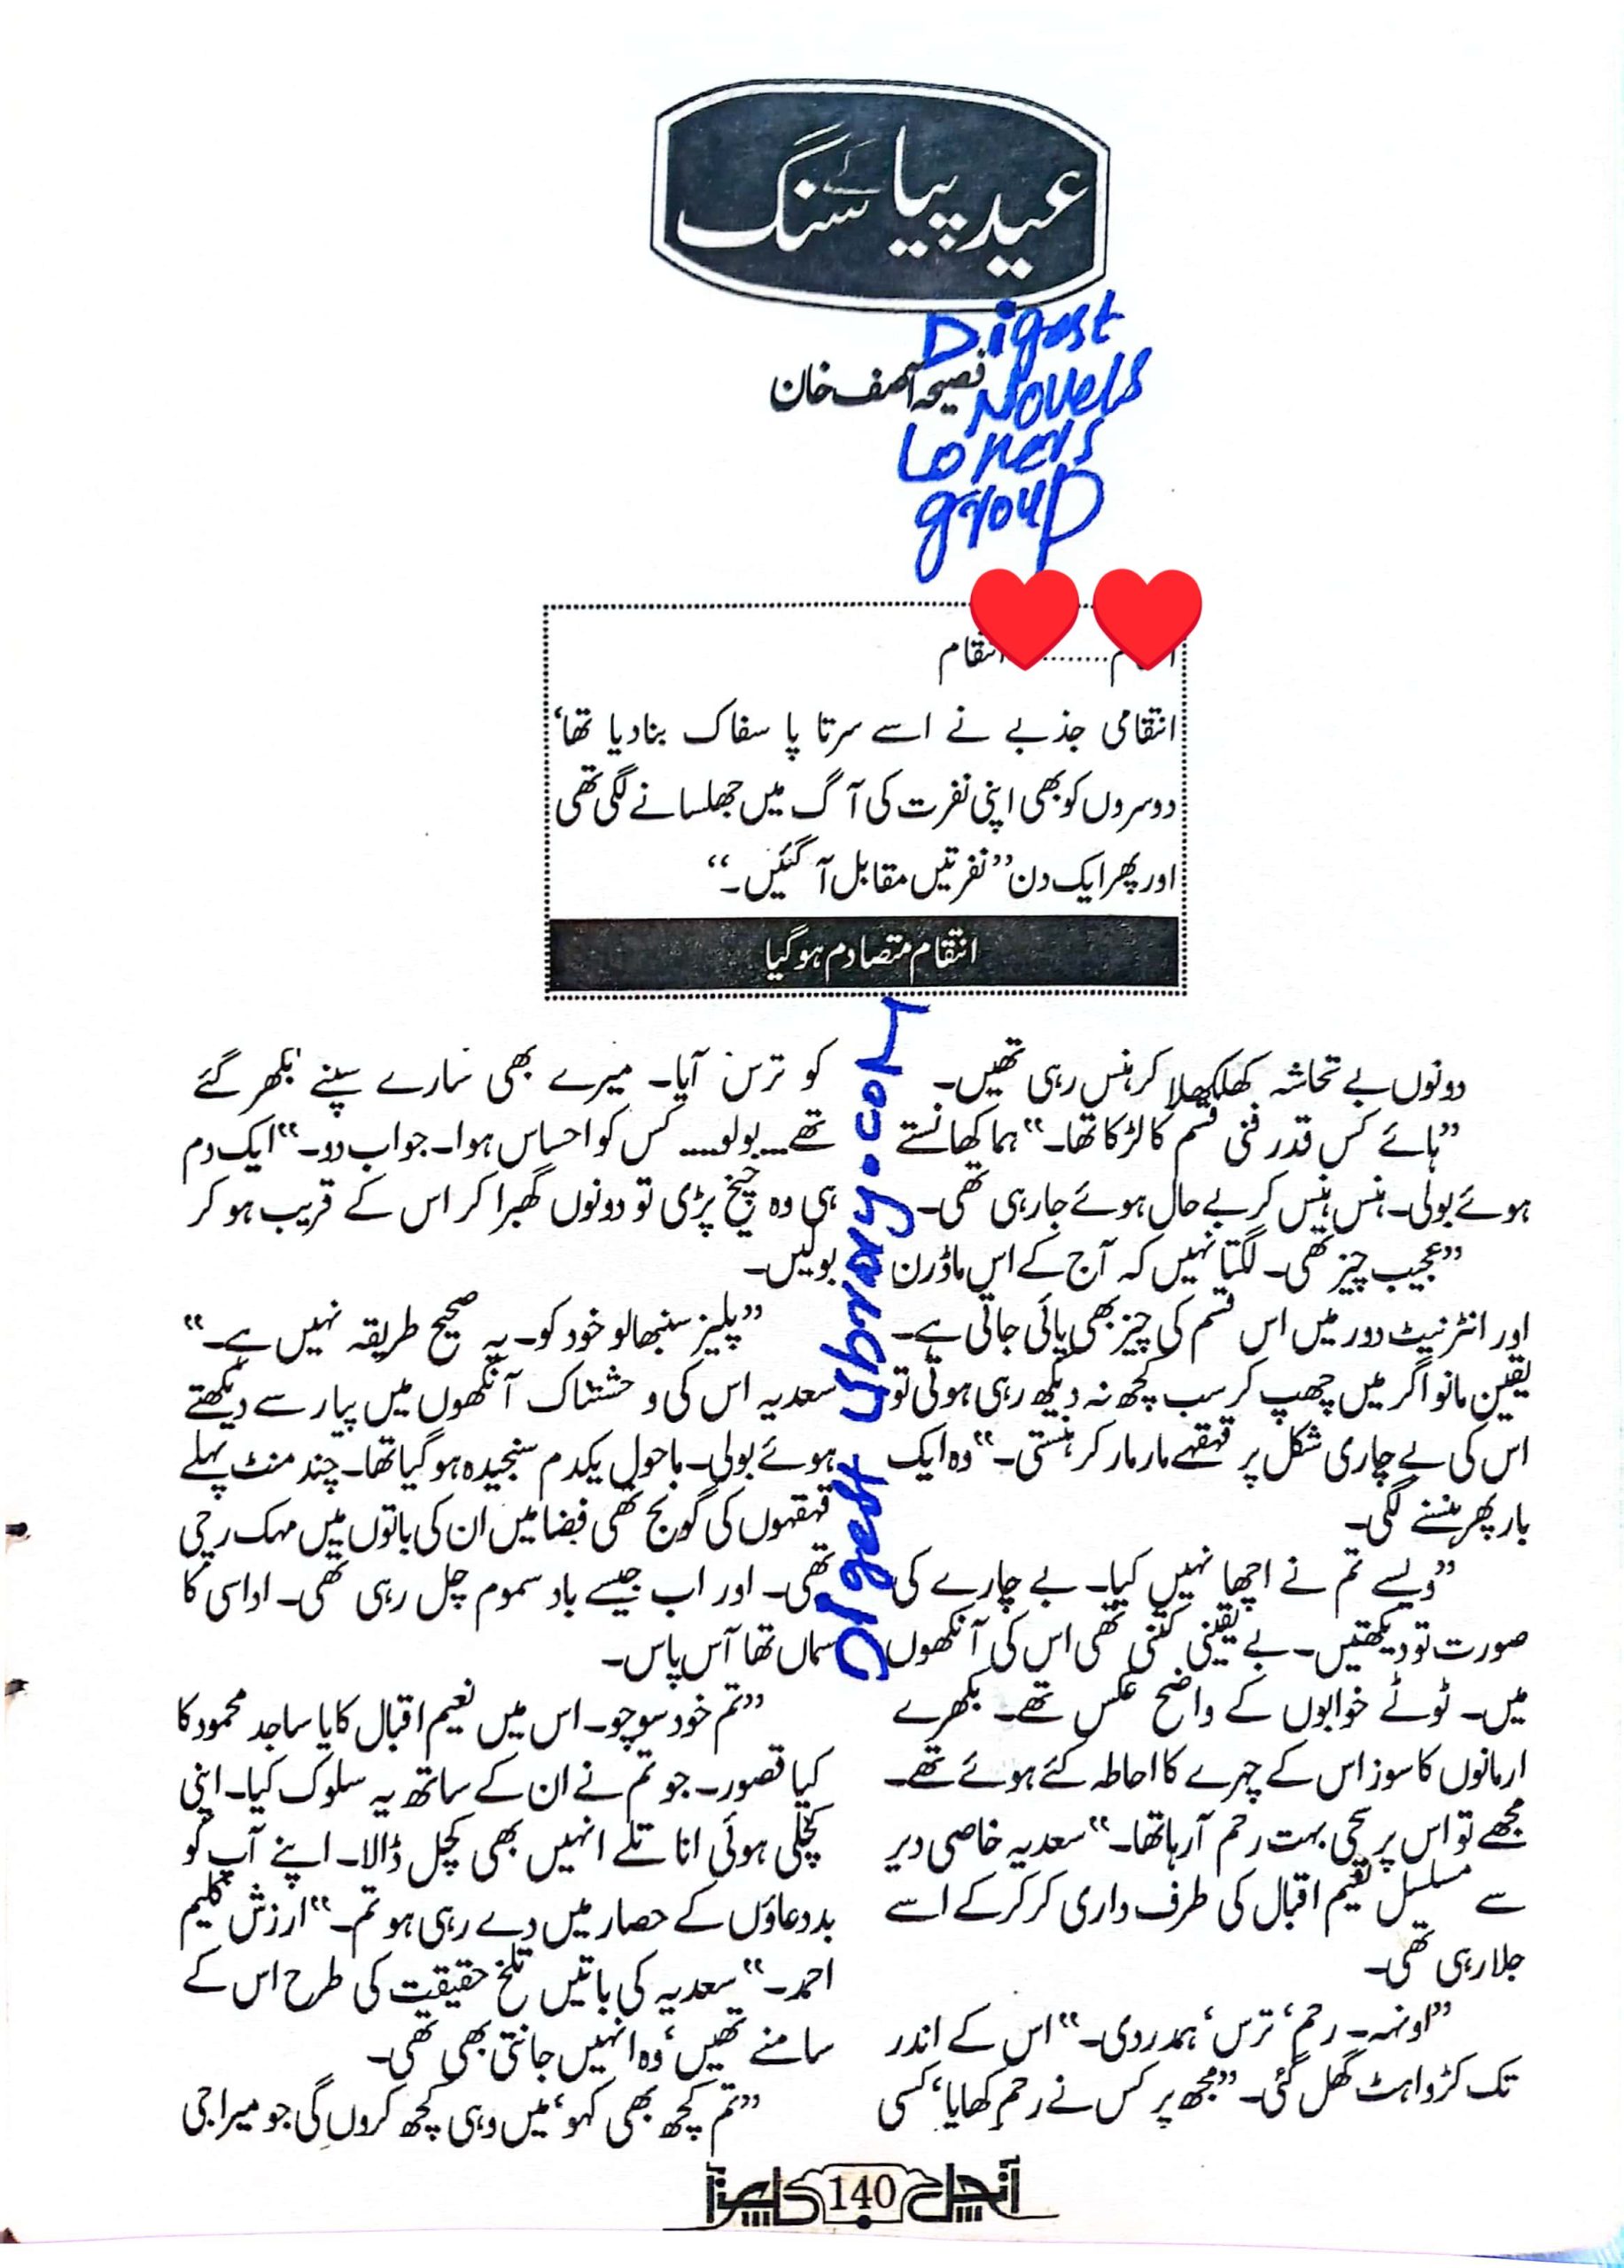 عید پیا کے سنگ
Digest
Novels
Lovers
group
فصیحہ آصف خان
انتقام
انتقامی جذبے نے اسے سرتا پا سفاک بنادیا تھا،
دوسروں کو بھی اپنی نفرت کی آگ میں جھلسانے لگی تھی
اور پھر ایک دن ”نفرتیں مقابل آگئیں۔“
انتقام متصادم ہوگیا
دونوں بے تحاشہ کھلکھلا کر ہنس رہی تھیں۔
”ہائے کس قدر فنی قسم کا لڑکا تھا۔“ ہما کھانستے
ہوئے بولی۔ ہنس ہنس کر بے حال ہوئے جارہی تھی۔
”عجیب چیز تھی۔ لگتا نہیں کہ آج کے اس ماڈرن
اور انٹرنیٹ دور میں اس قسم کی چیز بھی پائی جاتی ہے۔
یقین مانو اگر میں چھپ کر سب کچھ نہ دیکھ رہی ہوتی تو
اس کی بے چاری شکل پر قہقہے مار مار کر ہنستی۔“ وہ ایک
بار پھر ہنسنے لگی۔
”ویسے تم نے اچھا نہیں کیا۔ بے چارے کی
صورت تو دیکھتیں۔ بے یقینی کتنی تھی اس کی آنکھوں
میں۔ ٹوٹے خوابوں کے واضح عکس تھے۔ بکھرے
ارمانوں کا سوز اس کے چہرے کا احاطہ کئے ہوئے تھے۔
مجھے تو اس پر سچی بہت رحم آرہا تھا۔“ سعدیہ خاصی دیر
سے مسلسل نعیم اقبال کی طرف داری کر کر کے اسے
جلارہی تھی۔
”اونہہ۔ رحم، ترس، ہمدردی۔“ اس کے اندر
تک کڑواہٹ گھل گئی۔ ”مجھ پر کس نے رحم کھایا، کسی
کو ترس آیا۔ میرے بھی سارے سپنے بکھر گئے
تھے.... بولو.... کس کو احساس ہوا۔ جواب دو۔“ ایک دم
ہی وہ چیخ پڑی تو دونوں گھبرا کر اس کے قریب ہو کر
بولیں۔
”پلیز سنبھالو خود کو۔ یہ صحیح طریقہ نہیں ہے۔“
سعدیہ اس کی وحشتناک آنکھوں میں پیار سے دیکھتے
ہوئے بولی۔ ماحول یکدم سنجیدہ ہوگیا تھا۔ چند منٹ پہلے
قہقہوں کی گونج تھی فضا میں ان کی باتوں میں مہک رچی
تھی۔ اور اب جیسے باد سموم چل رہی تھی۔ اداسی کا
سماں تھا آس پاس۔
”تم خود سوچو۔ اس میں نعیم اقبال کا یا ساجد محمود کا
کیا قصور۔ جو تم نے ان کے ساتھ یہ سلوک کیا۔ اپنی
کچلی ہوئی انا تلے انہیں بھی کچل ڈالا۔ اپنے آپ کو
بددعاؤں کے حصار میں دے رہی ہو تم۔“ ارزش کلیم
احمد۔“ سعدیہ کی باتیں تلخ حقیقت کی طرح اس کے
سامنے تھیں، وہ انہیں جانتی بھی تھی۔
”تم کچھ بھی کہو، میں وہی کچھ کروں گی جو میرا جی
Digest Library.com
آنچل 140